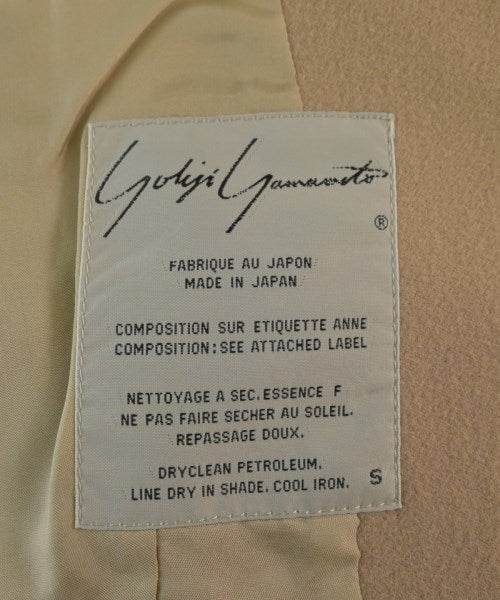 Yohji Yamamoto
®
FABRIQUE AU JAPON
MADE IN JAPAN
COMPOSITION SUR ETIQUETTE ANNE
COMPOSITION: SEE ATTACHED LABEL
NETTOYAGE A SEC. ESSENCE F
NE PAS FAIRE SECHER AU SOLEIL.
REPASSAGE DOUX.
DRYCLEAN PETROLEUM.
LINE DRY IN SHADE. COOL IRON.
S